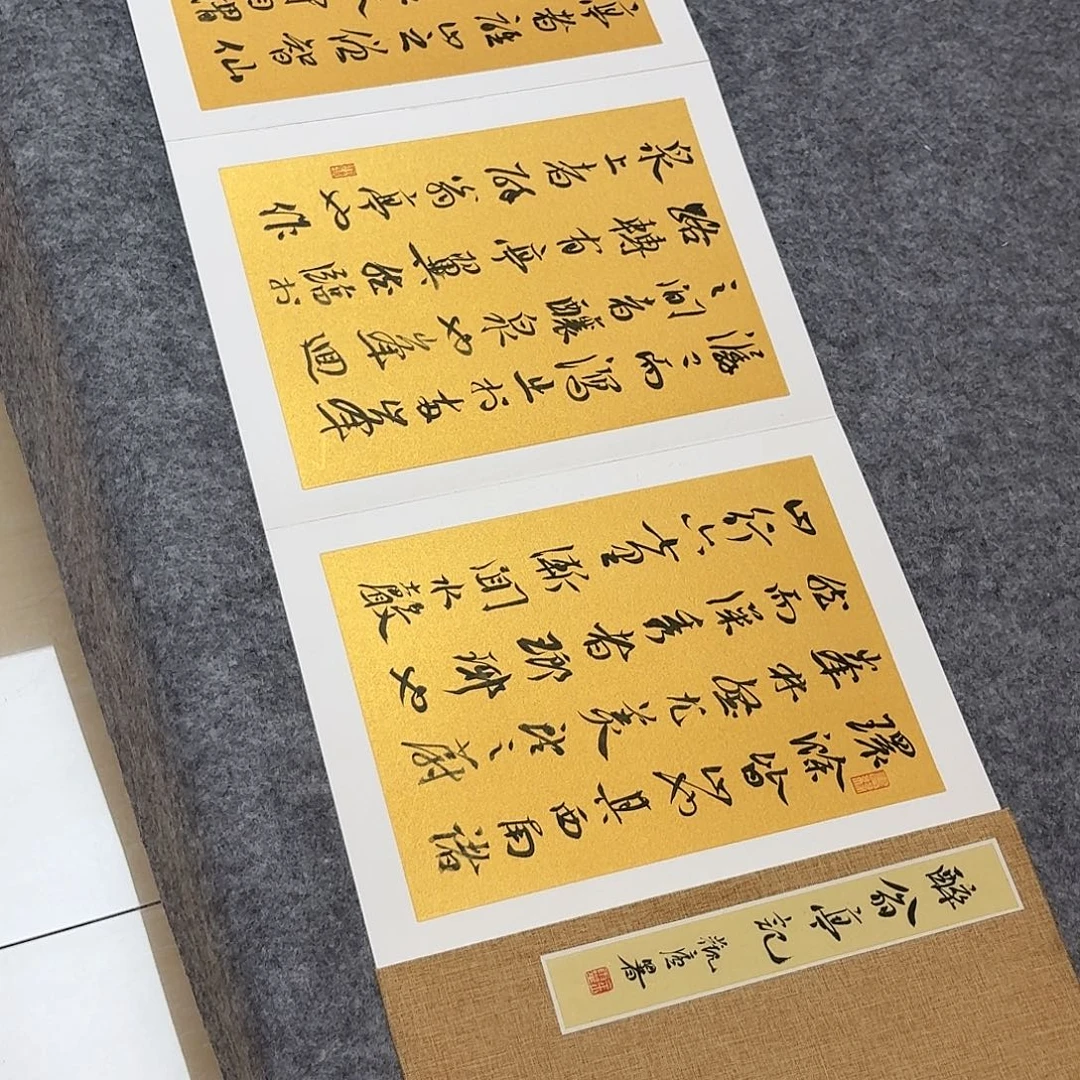 醉翁亭記
署
環滁皆山也其西南諸
峯林壑尤美望之蔚
然而深秀者琅琊也
山行六七里漸聞水聲
潺々而瀉出於兩峯
之間者釀泉也峯迴
路轉有亭翼然臨於
泉上者醉翁亭也作
亭者誰山之僧智仙